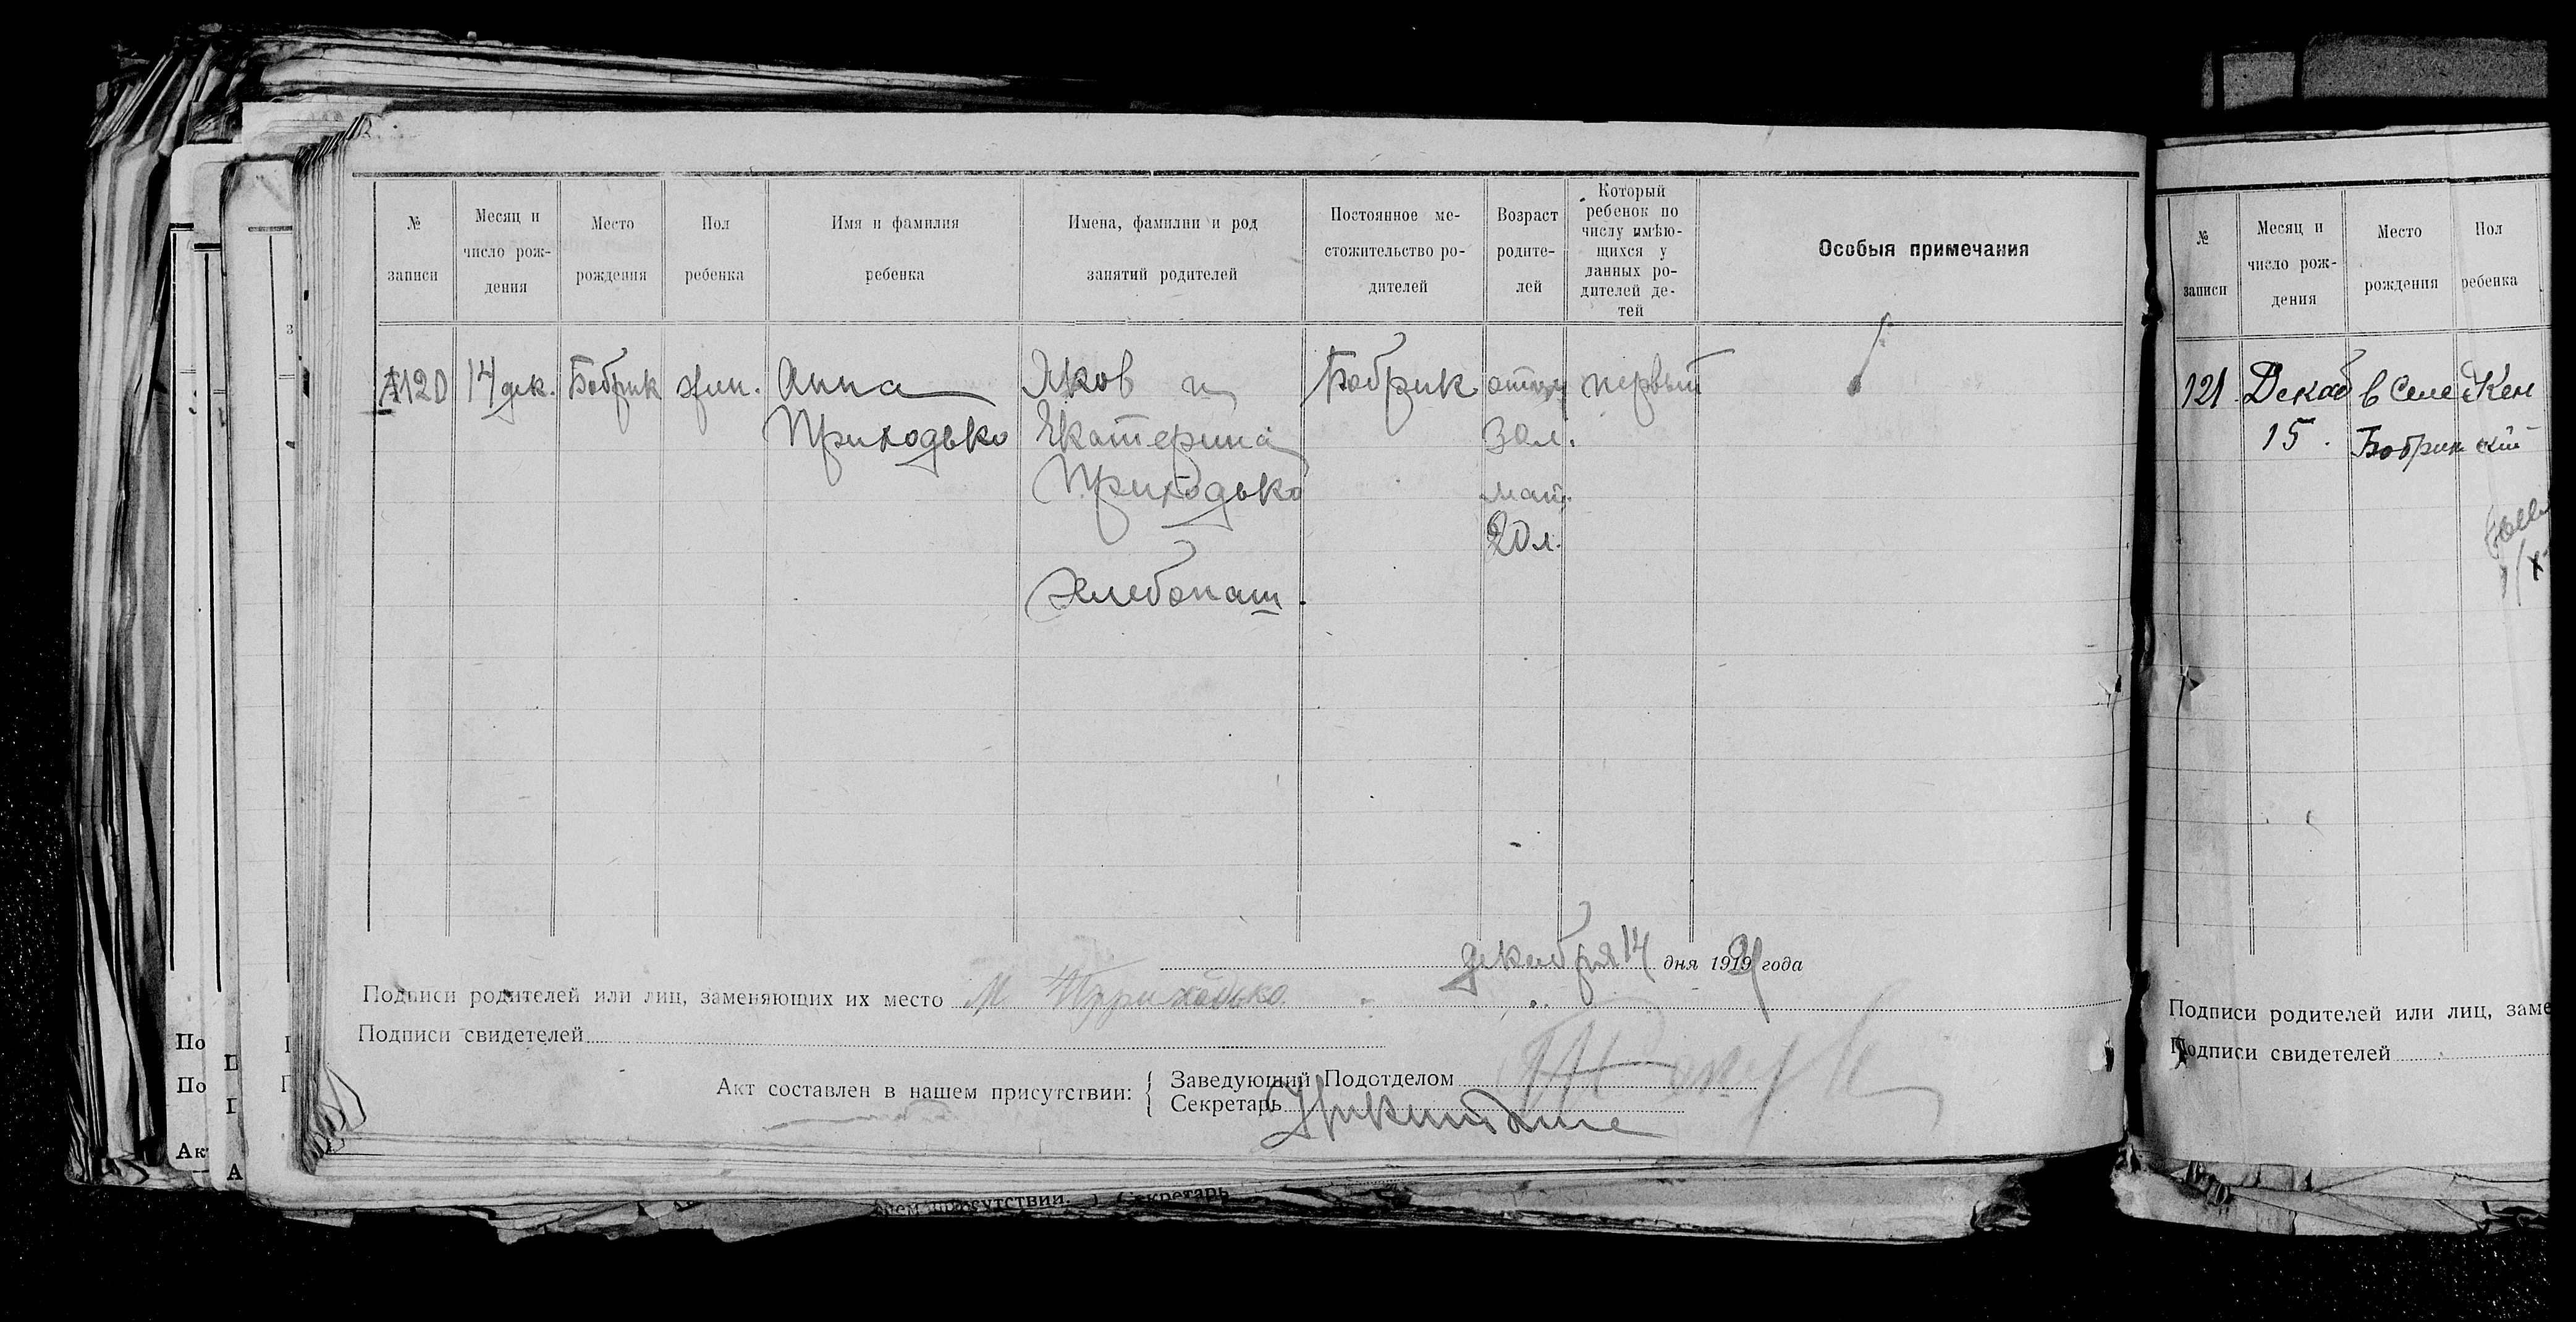 № записи
Месяц и число рождения
Место рождения
Пол ребенка
Имя и фамилия ребенка
Имена, фамилии и род занятий родителей
Постоянное местожительство родителей
Возраст родителей
Который ребенок по числу имѣющихся у данных родителей детей
Особыя примечания
120
14 дек.
Бобрик
жен.
Анна
Приходько
Яков и
Екатерина
Приходько
Хлебопаш.
Бобрик
отцу
30 л.
мат.
20 л.
первый
декабря 14 дня 1919 года
Подписи родителей или лиц, заменяющих их место М Приходько
Подписи свидетелей
Акт составлен в нашем присутствии:
Заведующий Подотделом
Секретарь
№ записи
Месяц и число рождения
Место рождения
Пол ребенка
121
Декаб
15.
в Селе
Бобрик
Жен
ский
Подписи родителей или лиц, заме
Подписи свидетелей
По
По
Ак
присутствии. Секретарь